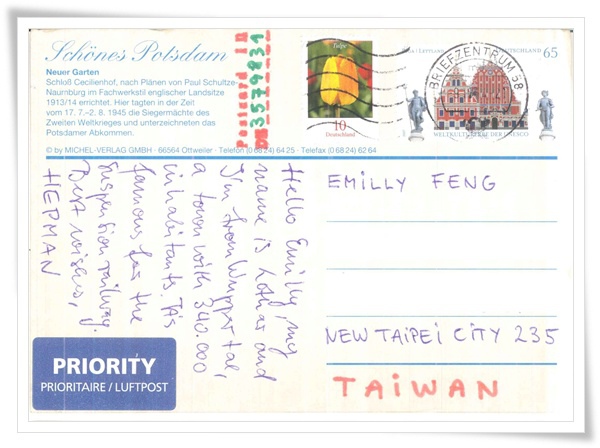 Schönes Potsdam
Neuer Garten
Schloß Cecilienhof, nach Plänen von Paul Schultze-
Naumburg im Fachwerkstil englischer Landsitze
1913/14 errichtet. Hier tagten in der Zeit
vom 17. 7.–2. 8. 1945 die Siegermächte des
Zweiten Weltkrieges und unterzeichneten das
Potsdamer Abkommen.
© by MICHEL-VERLAG GMBH · 66564 Ottweiler · Telefon (0 68 24) 64 25 · Telefax (0 68 24) 62 64
Postcard ID
DE 3579831
Tulpe
10
Deutschland
LETTLAND
DEUTSCHLAND 65
WELTKULTURERBE DER UNESCO
BRIEFZENTRUM 58
Hello Emilly, my
name is Lothar and
I'm from Wuppertal,
a town with 340.000
inhabitants. It's
famous for the
suspension railway.
Best wishes,
HEPMAN
EMILLY FENG
NEW TAIPEI CITY 235
TAIWAN
PRIORITY
PRIORITAIRE / LUFTPOST